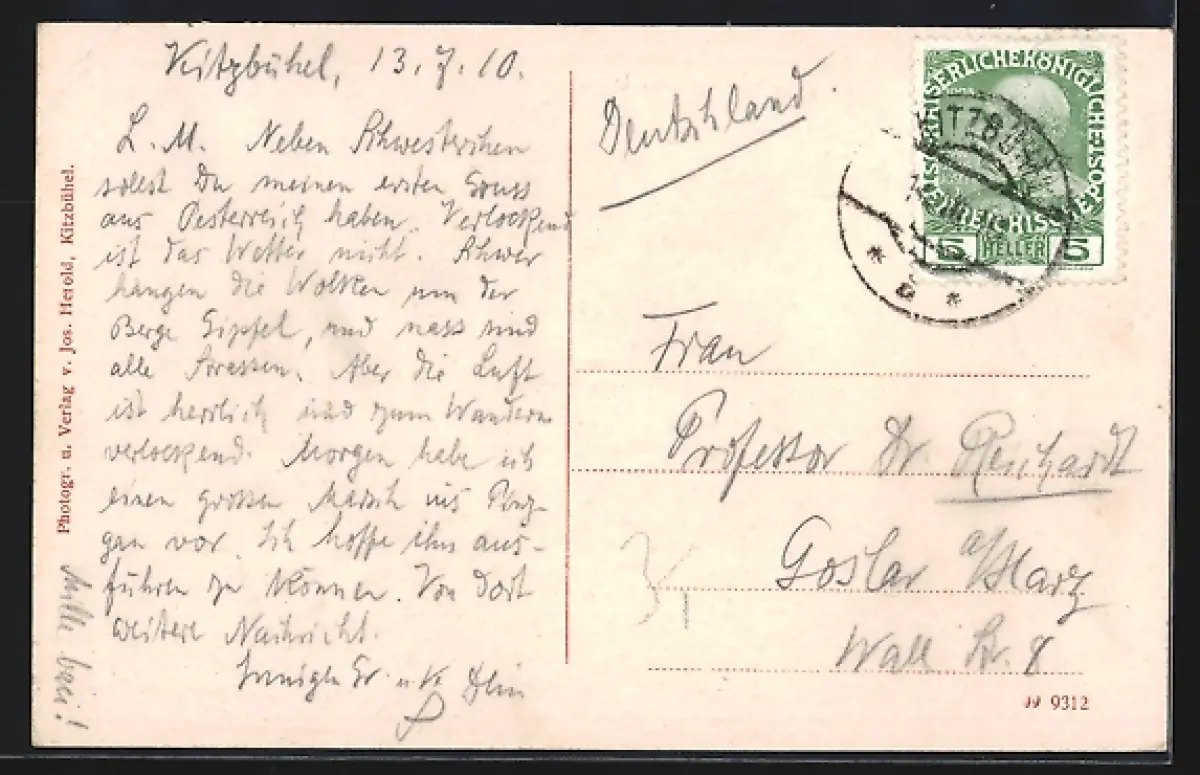 Kitzbühel, 13.7.10.
L. M. Neben Schwesterchen
sollst Du meinen ersten Gruss
aus Oesterreich haben. Verlockend
ist das Wetter nicht. Schwer
hangen die Wolken um der
Berge Gipfel, und nass sind
alle Strassen. Aber die Luft
ist herrlich und zum Wandern
verlockend. Morgen habe ich
einen grossen Marsch ins Pinz-
gau vor. Ich hoffe ihn aus-
führen zu können. Von dort
weitere Nachricht.
Innigst Gr. u. K. Dein
Mille baci!
Photogr. u. Verlag v. Jos. Herold, Kitzbühel.
Deutschland.
KAISERLICHEKÖNIGLICHE ÖSTERREICHISCHE
5 HELLER 5
KITZBÜHEL
* b *
Frau
Professor Dr. Reinhardt
Goslar a/Harz
Wall Str. 8
9312